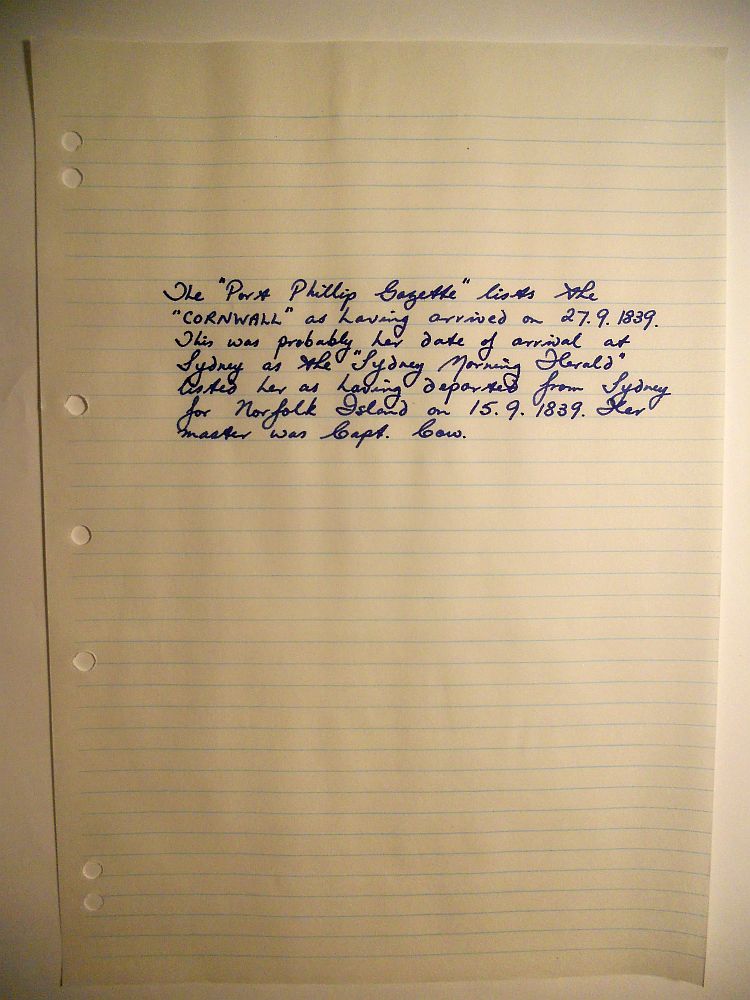 The "Port Phillip Gazette" lists the
"CORNWALL" as having arrived on 27.9.1839.
This was probably her date of arrival at
Sydney as the "Sydney Morning Herald"
listed her as having departed from Sydney
for Norfolk Island on 15.9.1839. Her
master was Capt. Cow.